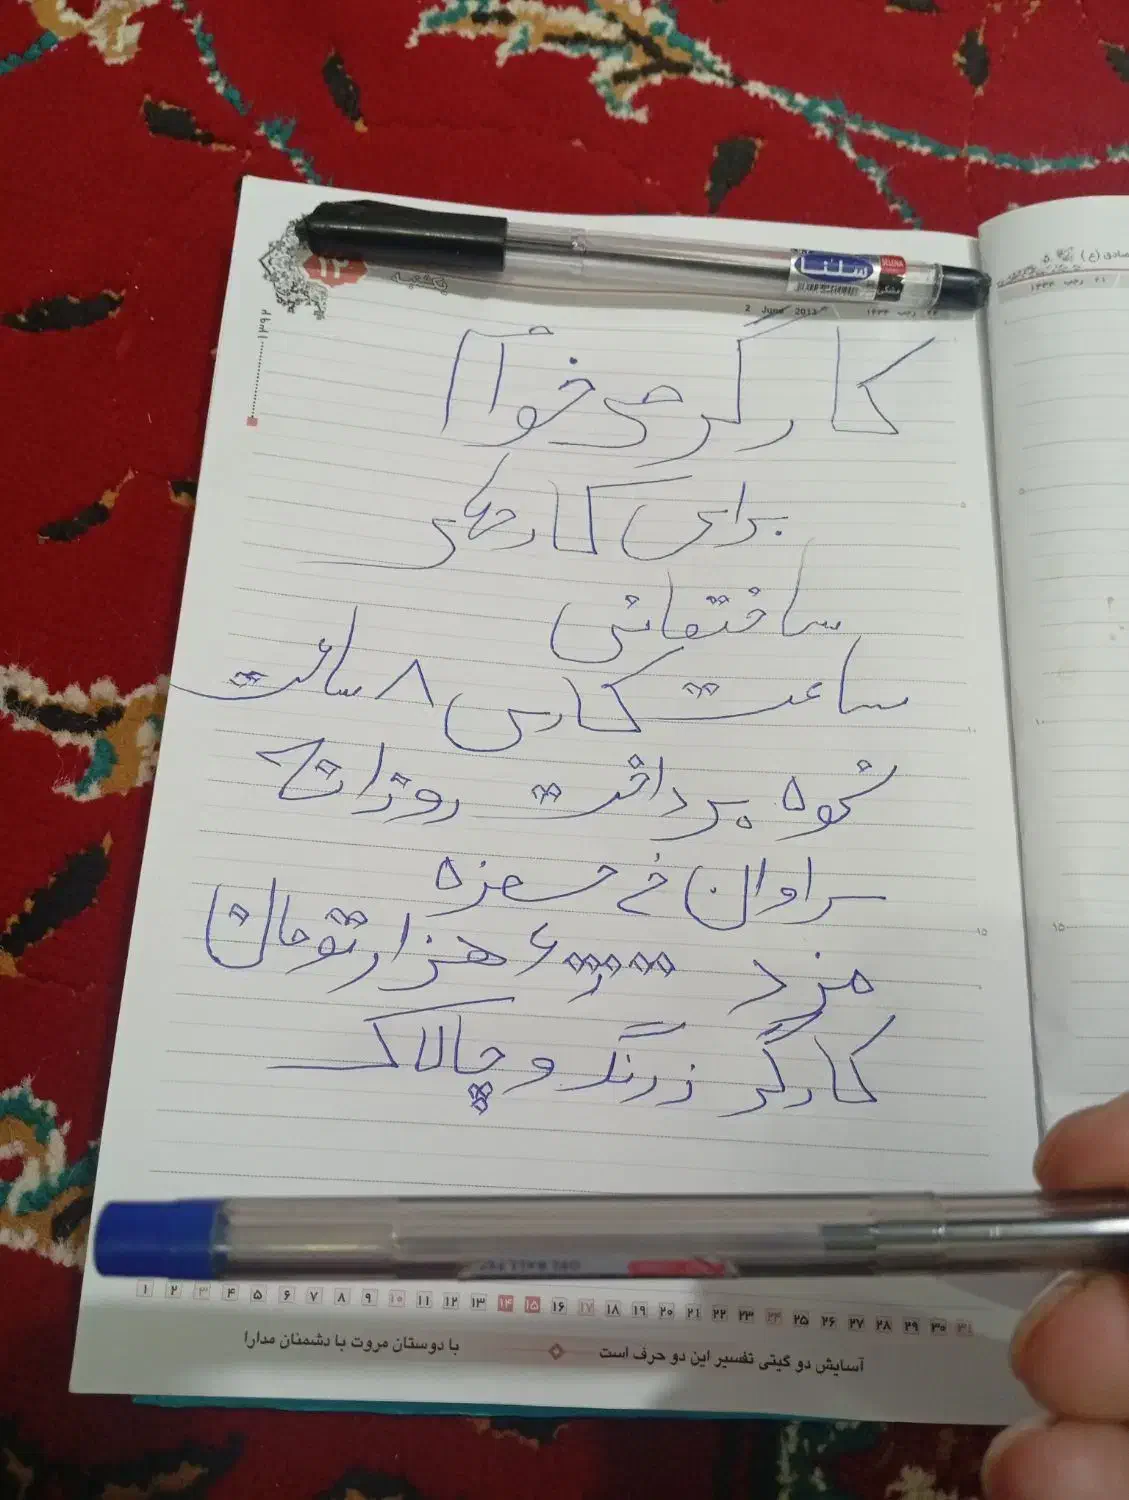 سلنا
SELENA
۱۲
یکشنبه
2 June 2013
۲۲ رجب ۱۴۳۴
۲۱ رجب ۱۴۳۴
کارگر می خوآم
برای کارهای
ساختمانی
ساعت کاری ۸ ساعت
نحوه پرداخت روزانه
سراوان خ حمزه
مزد ۶۰۰,۰۰۰ هزار تومان
کارگر زرنگ و چالاک
۵
۱۰
۱۵
۱ ۲ ۳ ۴ ۵ ۶ ۷ ۸ ۹ ۱۰ ۱۱ ۱۲ ۱۳ ۱۴ ۱۵ ۱۶ ۱۷ ۱۸ ۱۹ ۲۰ ۲۱ ۲۲ ۲۳ ۲۴ ۲۵ ۲۶ ۲۷ ۲۸ ۲۹ ۳۰ ۳۱
آسایش دو گیتی تفسیر این دو حرف است با دوستان مروت با دشمنان مدارا